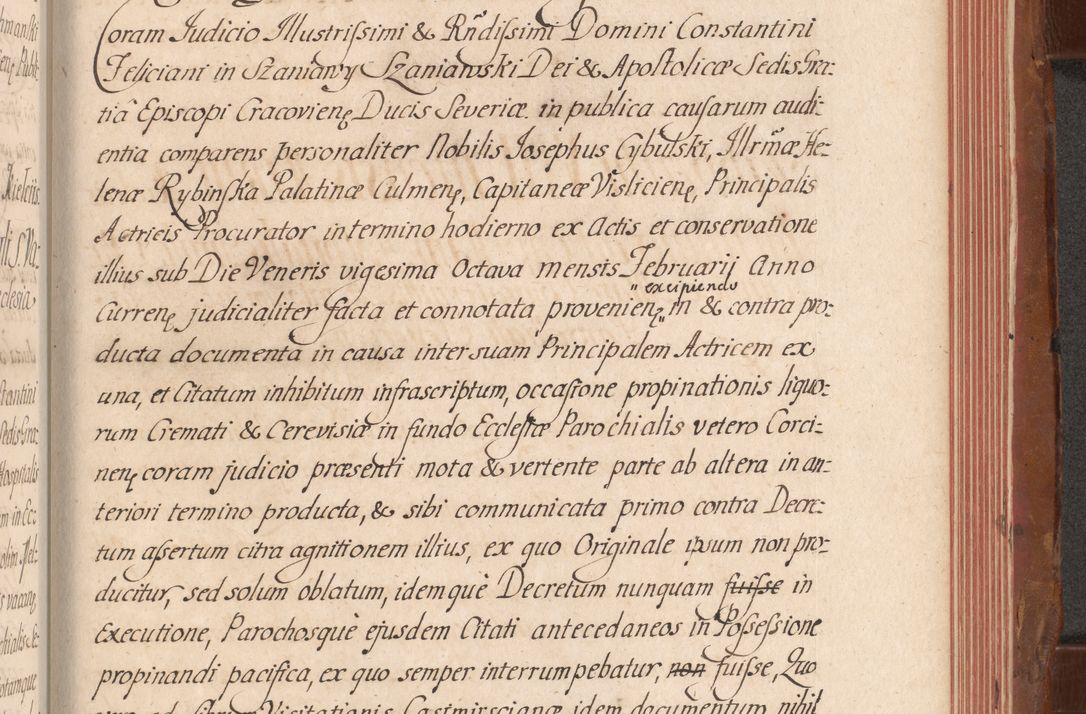 Coram Judicio Illustrissimi & Rńdissimi Domini Constantini
Feliciani in Szaniawy Szaniawski Dei & Apostolicæ Sedis Gra-
tiâ Episcopi Cracovienȩ Ducis Severiæ in publica causarum audi-
entia comparens personaliter Nobilis Josephus Cybulski, Illrmæ He-
lenæ Rybinska Palatinæ Culmenȩ, Capitaneæ Vislicienȩ, Principalis
Actricis Procurator in termino hodierno ex Actis et conservatione
illius sub Die Veneris vigesima Octava mensis Februarij Anno
" excipiendo
Currenȩ judicialiter facta et connotata provenienȩ " in & contra pro-
ducta documenta in causa inter suam Principalem Actricem ex
una, et Citatum inhibitum infrascriptum, occasione propinationis liquo-
rum Cremati & Cerevisiæ in fundo Ecclesiæ Parochialis vetero Corci-
nenȩ coram judicio præsenti mota & vertente parte ab altera in an-
teriori termino producta, & sibi communicata primo contra Decre-
tum assertum citra agnitionem illius, ex quo Originale ipsum non pro-
ducitur, sed solum oblatum, idemquè Decretum nunquam fuisse in
Executione, Parochosquè ejusdem Citati antecedaneos in Possessione
propinandi pacifica, ex quo semper interrumpebatur, non fuisse, Quo
ad Visitationis idem documentum nihil